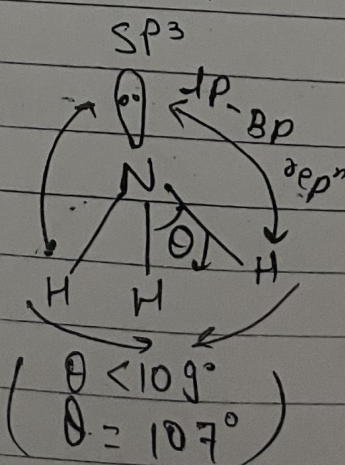 SP³
lP-BP
repⁿ
N
θ
H H H
θ < 109°
θ = 107°